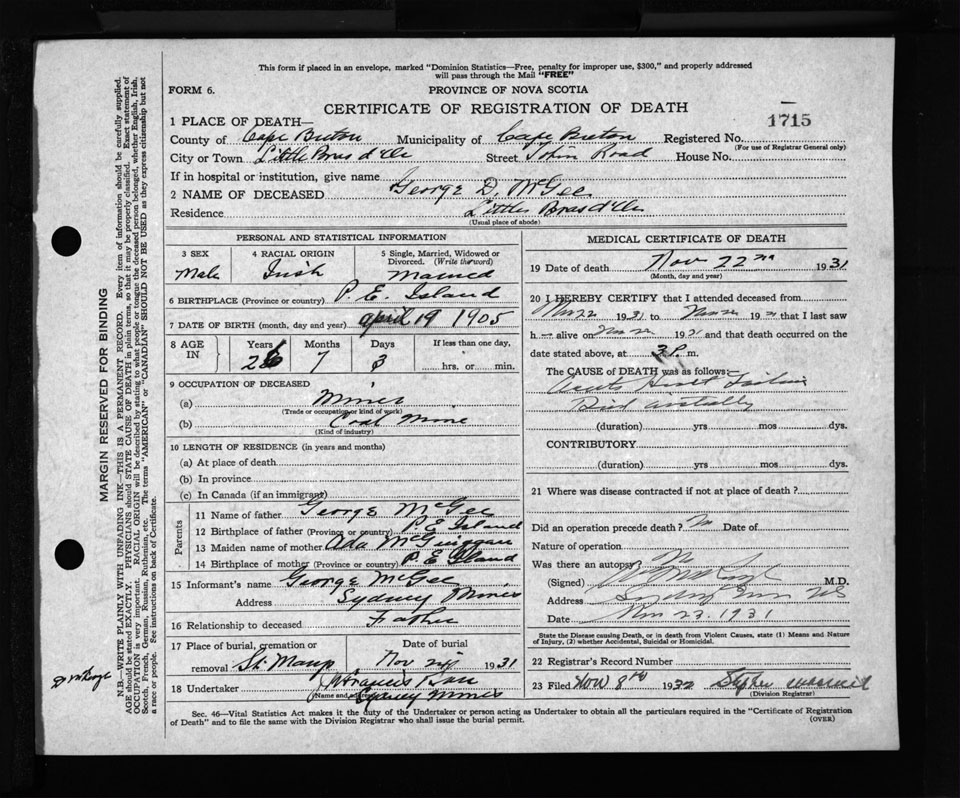 This form if placed in an envelope, marked "Dominion Statistics—Free, penalty for improper use, $300," and properly addressed
will pass through the Mail "FREE"
FORM 6. PROVINCE OF NOVA SCOTIA
CERTIFICATE OF REGISTRATION OF DEATH
1715
1 PLACE OF DEATH—
County of Cape Breton Municipality of Cape Breton Registered No.
(For use of Registrar General only)
City or Town Little Bras d'Or Street John Road House No.
If in hospital or institution, give name
2 NAME OF DECEASED George D. McGee
Residence Little Bras d'Or
(Usual place of abode)
PERSONAL AND STATISTICAL INFORMATION
3 SEX 4 RACIAL ORIGIN 5 Single, Married, Widowed or
Divorced. (Write the word)
Male Irish Married
6 BIRTHPLACE (Province or country) P. E. Island
7 DATE OF BIRTH (month, day and year) April 19 1905
8 AGE IN Years Months Days If less than one day,
26 7 3 hrs. or min.
9 OCCUPATION OF DECEASED
(a) Miner
(Trade or occupation or kind of work)
(b) Coal Mine
(Kind of industry)
10 LENGTH OF RESIDENCE (in years and months)
(a) At place of death
(b) In province
(c) In Canada (if an immigrant)
Parents
11 Name of father George McGee
12 Birthplace of father (Province or country) P E Island
13 Maiden name of mother Ada McGuiggan
14 Birthplace of mother (Province or country) P E Island
15 Informant's name George McGee
Address Sydney Mines
16 Relationship to deceased Father
17 Place of burial, cremation or Date of burial
removal St. Marys Nov 24 1931
18 Undertaker Francis
(Name and
Sydney Mines
MEDICAL CERTIFICATE OF DEATH
19 Date of death Nov 22nd 1931
(Month, day and year)
20 I HEREBY CERTIFY that I attended deceased from
Nov 22 1931 to Nov 22 1931 that I last saw
h — alive on Nov 22 1931 and that death occurred on the
date stated above, at 3 P. m.
The CAUSE of DEATH was as follows:
Acute Heart Failure
Died
(duration) yrs mos dys.
CONTRIBUTORY
(duration) yrs mos dys.
21 Where was disease contracted if not at place of death?
Did an operation precede death? No Date of
Nature of operation
Was there an autopsy? No
(Signed) M.D.
Address Sydney Mines NS
Date Nov 23. 1931
State the Disease causing Death, or in death from Violent Causes, state (1) Means and Nature
of Injury, (2) whether Accidental, Suicidal or Homicidal.
22 Registrar's Record Number
23 Filed Nov 8th 1932 Stephen
(Division Registrar)
Sec. 46—Vital Statistics Act makes it the duty of the Undertaker or person acting as Undertaker to obtain all the particulars required in the "Certificate of Registration
of Death" and to file the same with the Division Registrar who shall issue the burial permit. (OVER)
MARGIN RESERVED FOR BINDING
N.B.—WRITE PLAINLY WITH UNFADING INK—THIS IS A PERMANENT RECORD. Every item of information should be carefully supplied.
AGE should be stated EXACTLY. PHYSICIANS should STATE CAUSE OF DEATH in plain terms, so that it may be properly classified. Exact statement of
OCCUPATION is very important. RACIAL ORIGIN will be described by stating to what people or tongue the deceased person belonged, whether English, Irish,
Scotch, French, German, Russian, Ruthenian, etc. The terms "AMERICAN" or "CANADIAN" SHOULD NOT BE USED as they express citizenship but not
a race or people. See instructions on back of Certificate.